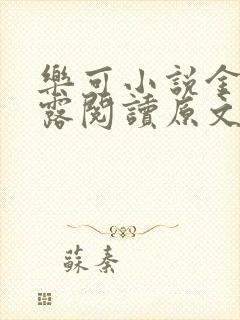 樂可小說金
露閱讀原文
蘇秦